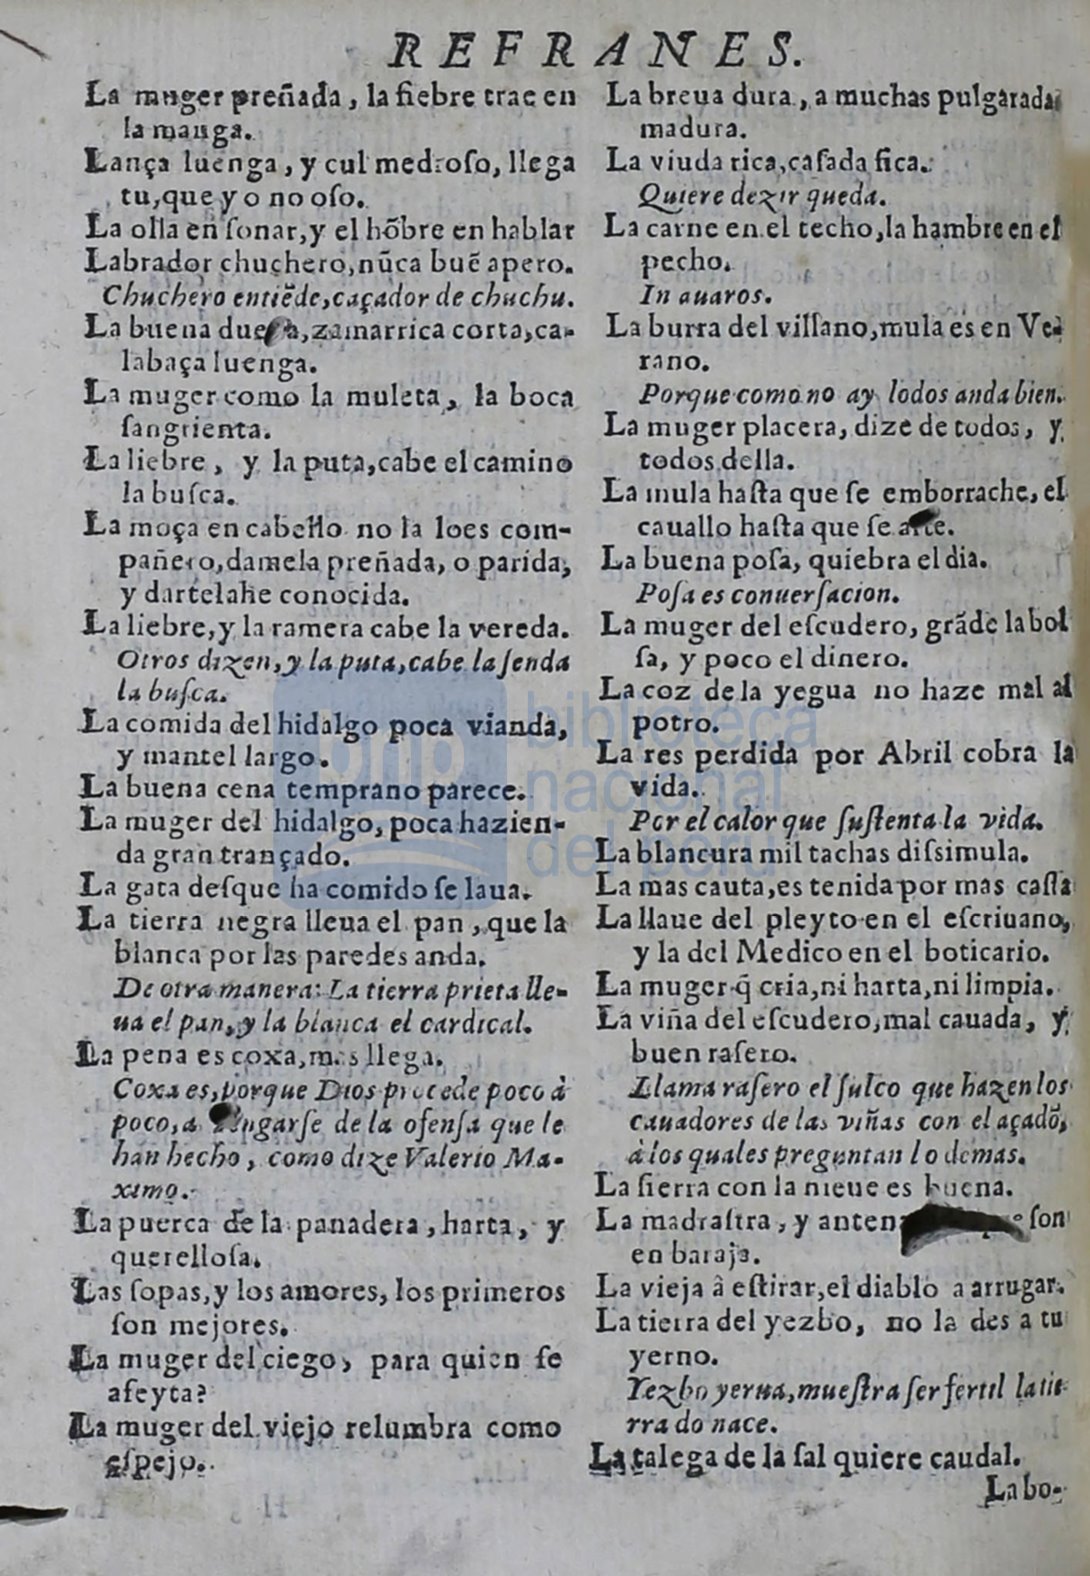 REFRANES.
La muger preñada, la fiebre trae en
la manga.
Lança luenga, y cul medroso, llega
tu, que yo no oso.
La olla en sonar, y el hõbre en hablar
Labrador chuchero, nũca buẽ apero.
Chuchero entiẽde, caçador de chuchu.
La buena dueña, zamarrica corta, ca-
labaça luenga.
La muger como la muleta, la boca
sangrienta.
La liebre, y la puta, cabe el camino
la busca.
La moça en cabello no la loes com-
pañero, damela preñada, o parida,
y dartelahe conocida.
La liebre, y la ramera cabe la vereda.
Otros dizen, y la puta, cabe la senda
la busca.
La comida del hidalgo poca vianda,
y mantel largo.
La buena cena temprano parece.
La muger del hidalgo, poca hazien-
da gran trançado.
La gata desque ha comido se laua.
La tierra negra lleua el pan, que la
blanca por las paredes anda.
De otra manera: La tierra prieta lle-
ua el pan, y la blanca el cardical.
La pena es coxa, mas llega.
Coxa es, porque Dios procede poco à
poco, a vengarse de la ofensa que le
han hecho, como dize Valerio Ma-
ximo.
La puerca de la panadera, harta, y
querellosa.
Las sopas, y los amores, los primeros
son mejores.
La muger del ciego, para quien se
afeyta?
La muger del viejo relumbra como
espejo.
La breua dura, a muchas pulgaradas
madura.
La viuda rica, casada fica.
Quiere dezir queda.
La carne en el techo, la hambre en el
pecho.
In auaros.
La burra del villano, mula es en Ve-
rano.
Porque como no ay lodos anda bien.
La muger placera, dize de todos, y
todos della.
La mula hasta que se emborrache, el
cauallo hasta que se arte.
La buena posa, quiebra el dia.
Posa es conuersacion.
La muger del escudero, grãde la bol
sa, y poco el dinero.
La coz de la yegua no haze mal al
potro.
La res perdida por Abril cobra la
vida.
Por el calor que sustenta la vida.
La blancura mil tachas dissimula.
La mas cauta, es tenida por mas casta
La llaue del pleyto en el escriuano,
y la del Medico en el boticario.
La muger q̃ cria, ni harta, ni limpia.
La viña del escudero, mal cauada, y
buen rasero.
Llama rasero el sulco que hazen los
cauadores de las viñas con el açadõ,
à los quales preguntan lo demas.
La sierra con la nieue es buena.
La madrastra, y anten son
en baraja.
La vieja â estirar, el diablo a arrugar.
La tierra del yezbo, no la des a tu
yerno.
Yezbo yerua, muestra ser fertil la tie
rra do nace.
La talega de la sal quiere caudal.
La bo-
biblioteca
nacional
del perú
bnp